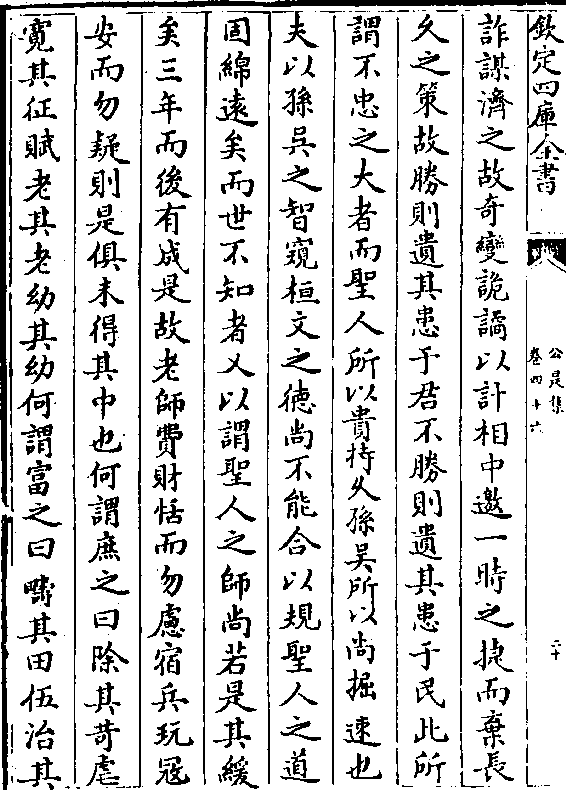 欽定四庫全書
公是集
卷四十六
二十
詐謀濟之故奇變詭譎以計相中邀一時之捷而棄長
久之策故勝則遺其患于君不勝則遺其患于民此所
謂不忠之大者而聖人所以貴持久孫吳所以尚掘速也
夫以孫吳之智窺桓文之德尚不能合以規聖人之道
固綿遠矣而世不知者乂以謂聖人之師尚若是其緩
矣三年而後有成是故老師費財恬而勿慮宿兵玩冦
安而勿疑則是俱未得其中也何謂庶之曰除其苛虐
寛其征賦老其老幼其幼何謂富之曰疇其田伍治其